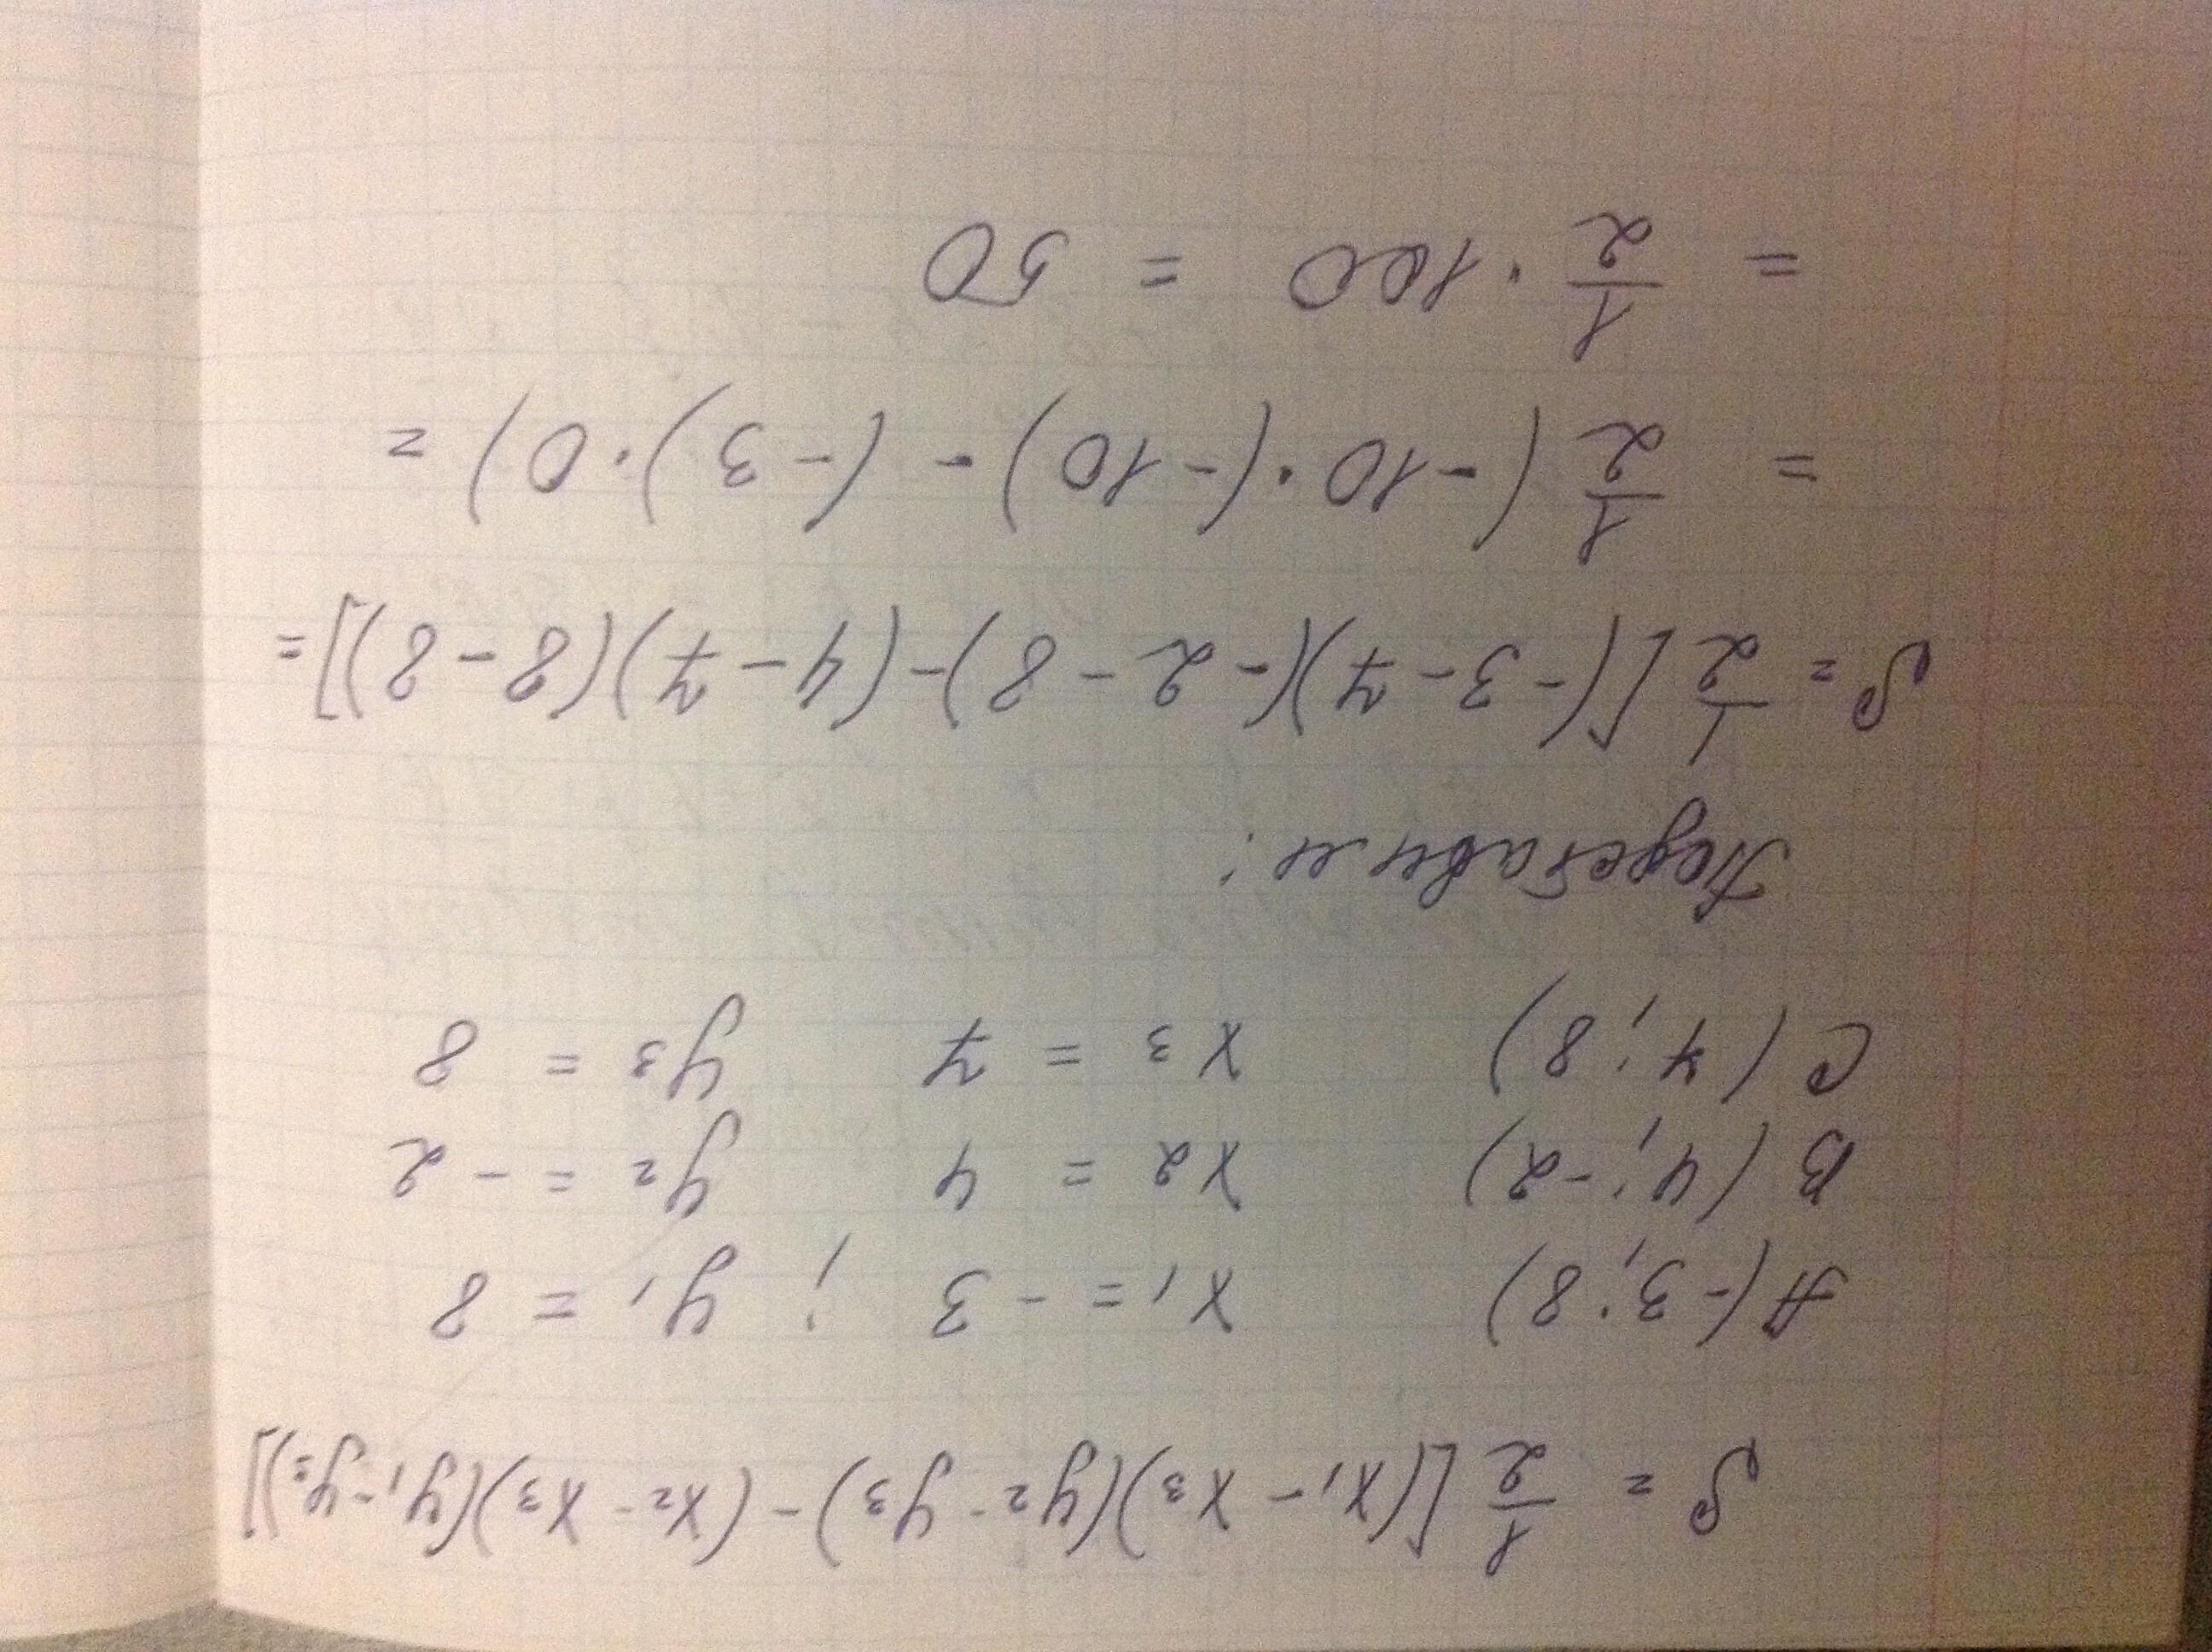 S = 1/2 [(x₁ - x₃)(y₂ - y₃) - (x₂ - x₃)(y₁ - y₃)]
A(-3; 8) x₁ = -3 ; y₁ = 8
B(4; -2) x₂ = 4 y₂ = -2
C(7; 8) x₃ = 7 y₃ = 8
Подставим:
S = 1/2 [(-3-7)(-2-8)-(4-7)(8-8)] =
= 1/2 (-10·(-10) - (-3)·0) =
= 1/2 · 100 = 50